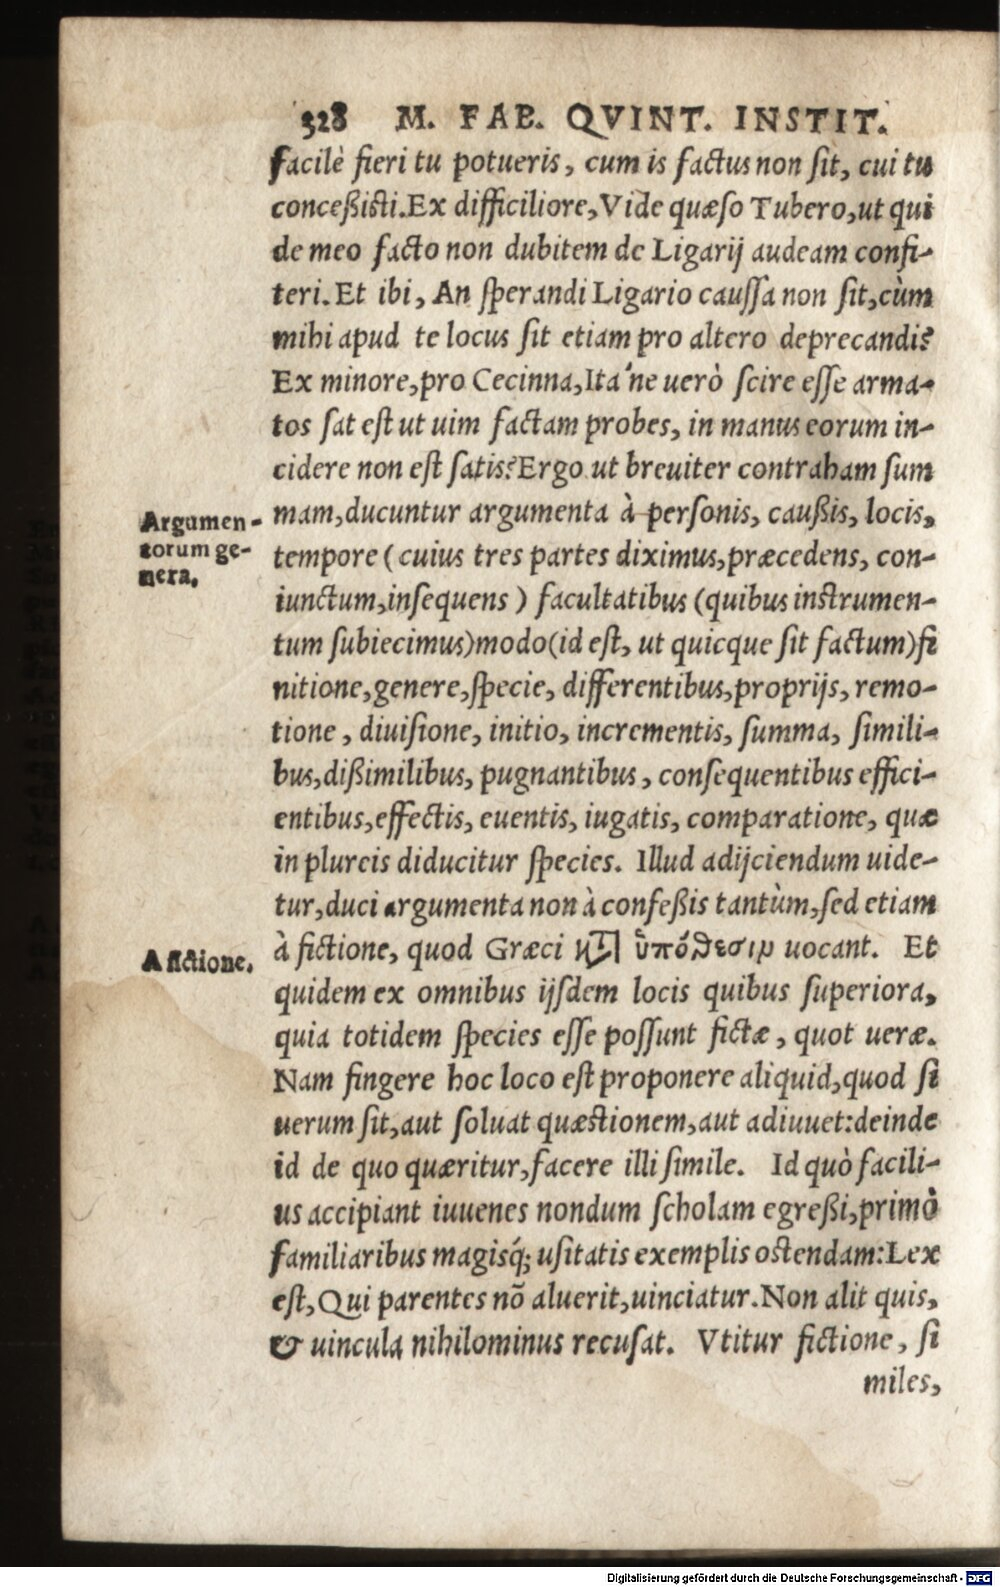 328 M. FAB. QVINT. INSTIT.
facilè fieri tu potueris, cum is factus non sit, cui tu
conceßisti. Ex difficiliore, Vide quæso Tubero, ut qui
de meo facto non dubitem de Ligarij audeam confi-
teri. Et ibi, An sperandi Ligario caussa non sit, cùm
mihi apud te locus sit etiam pro altero deprecandi?
Ex minore, pro Cecinna, Ita'ne uerò scire esse arma-
tos sat est ut uim factam probes, in manus eorum in-
cidere non est satis? Ergo ut breuiter contraham sum
Argumen-
torum ge-
nera.
mam, ducuntur argumenta à personis, caußis, locis,
tempore (cuius tres partes diximus, præcedens, con-
iunctum, insequens) facultatibus (quibus instrumen-
tum subiecimus) modo (id est, ut quicque sit factum) fi
nitione, genere, specie, differentibus, proprijs, remo-
tione, diuisione, initio, incrementis, summa, simili-
bus, dißimilibus, pugnantibus, consequentibus effici-
entibus, effectis, euentis, iugatis, comparatione, quæ
in plureis diducitur species. Illud adijciendum uide-
tur, duci argumenta non à confeßis tantùm, sed etiam
A fictione.
à fictione, quod Græci καθ' ὑπόθεσιν uocant. Et
quidem ex omnibus ijsdem locis quibus superiora,
quia totidem species esse possunt fictæ, quot ueræ.
Nam fingere hoc loco est proponere aliquid, quod si
uerum sit, aut soluat quæstionem, aut adiuuet: deinde
id de quo quæritur, facere illi simile. Id quò facili-
us accipiant iuuenes nondum scholam egreßi, primò
familiaribus magisq́; usitatis exemplis ostendam: Lex
est, Qui parentes nõ aluerit, uinciatur. Non alit quis,
& uincula nihilominus recusat. Vtitur fictione, si
miles,
Digitalisierung gefördert durch die Deutsche Forschungsgemeinschaft - DFG